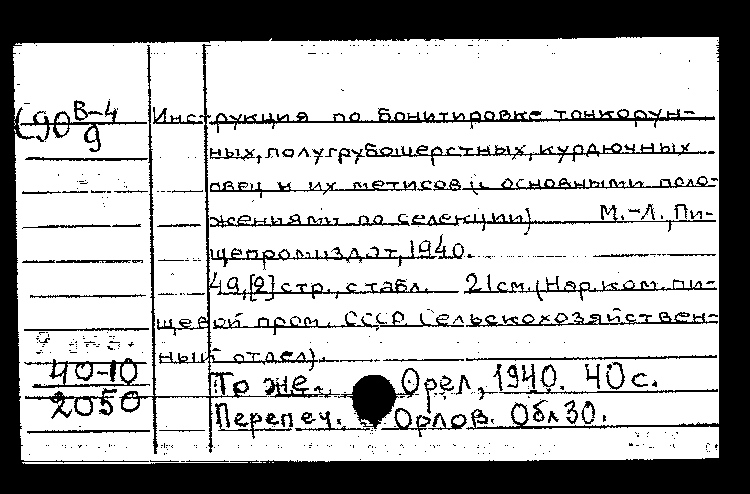 В-4
90
9
Инструкция по бонитировке тонкорун-
ных, полугрубошерстных, курдючных
овец и их метисов (с основными поло-
жениями по селекции) М.-Л., Пи-
щепромиздат, 1940.
49, [2] стр., с табл. 21 см. (Нар. ком. пи-
щевой пром. СССР (Сельскохозяйствен-
ный отдел).
40-10
2050
То же. Орел, 1940. 40 с.
Перепеч. Орлов. ОблЗО.